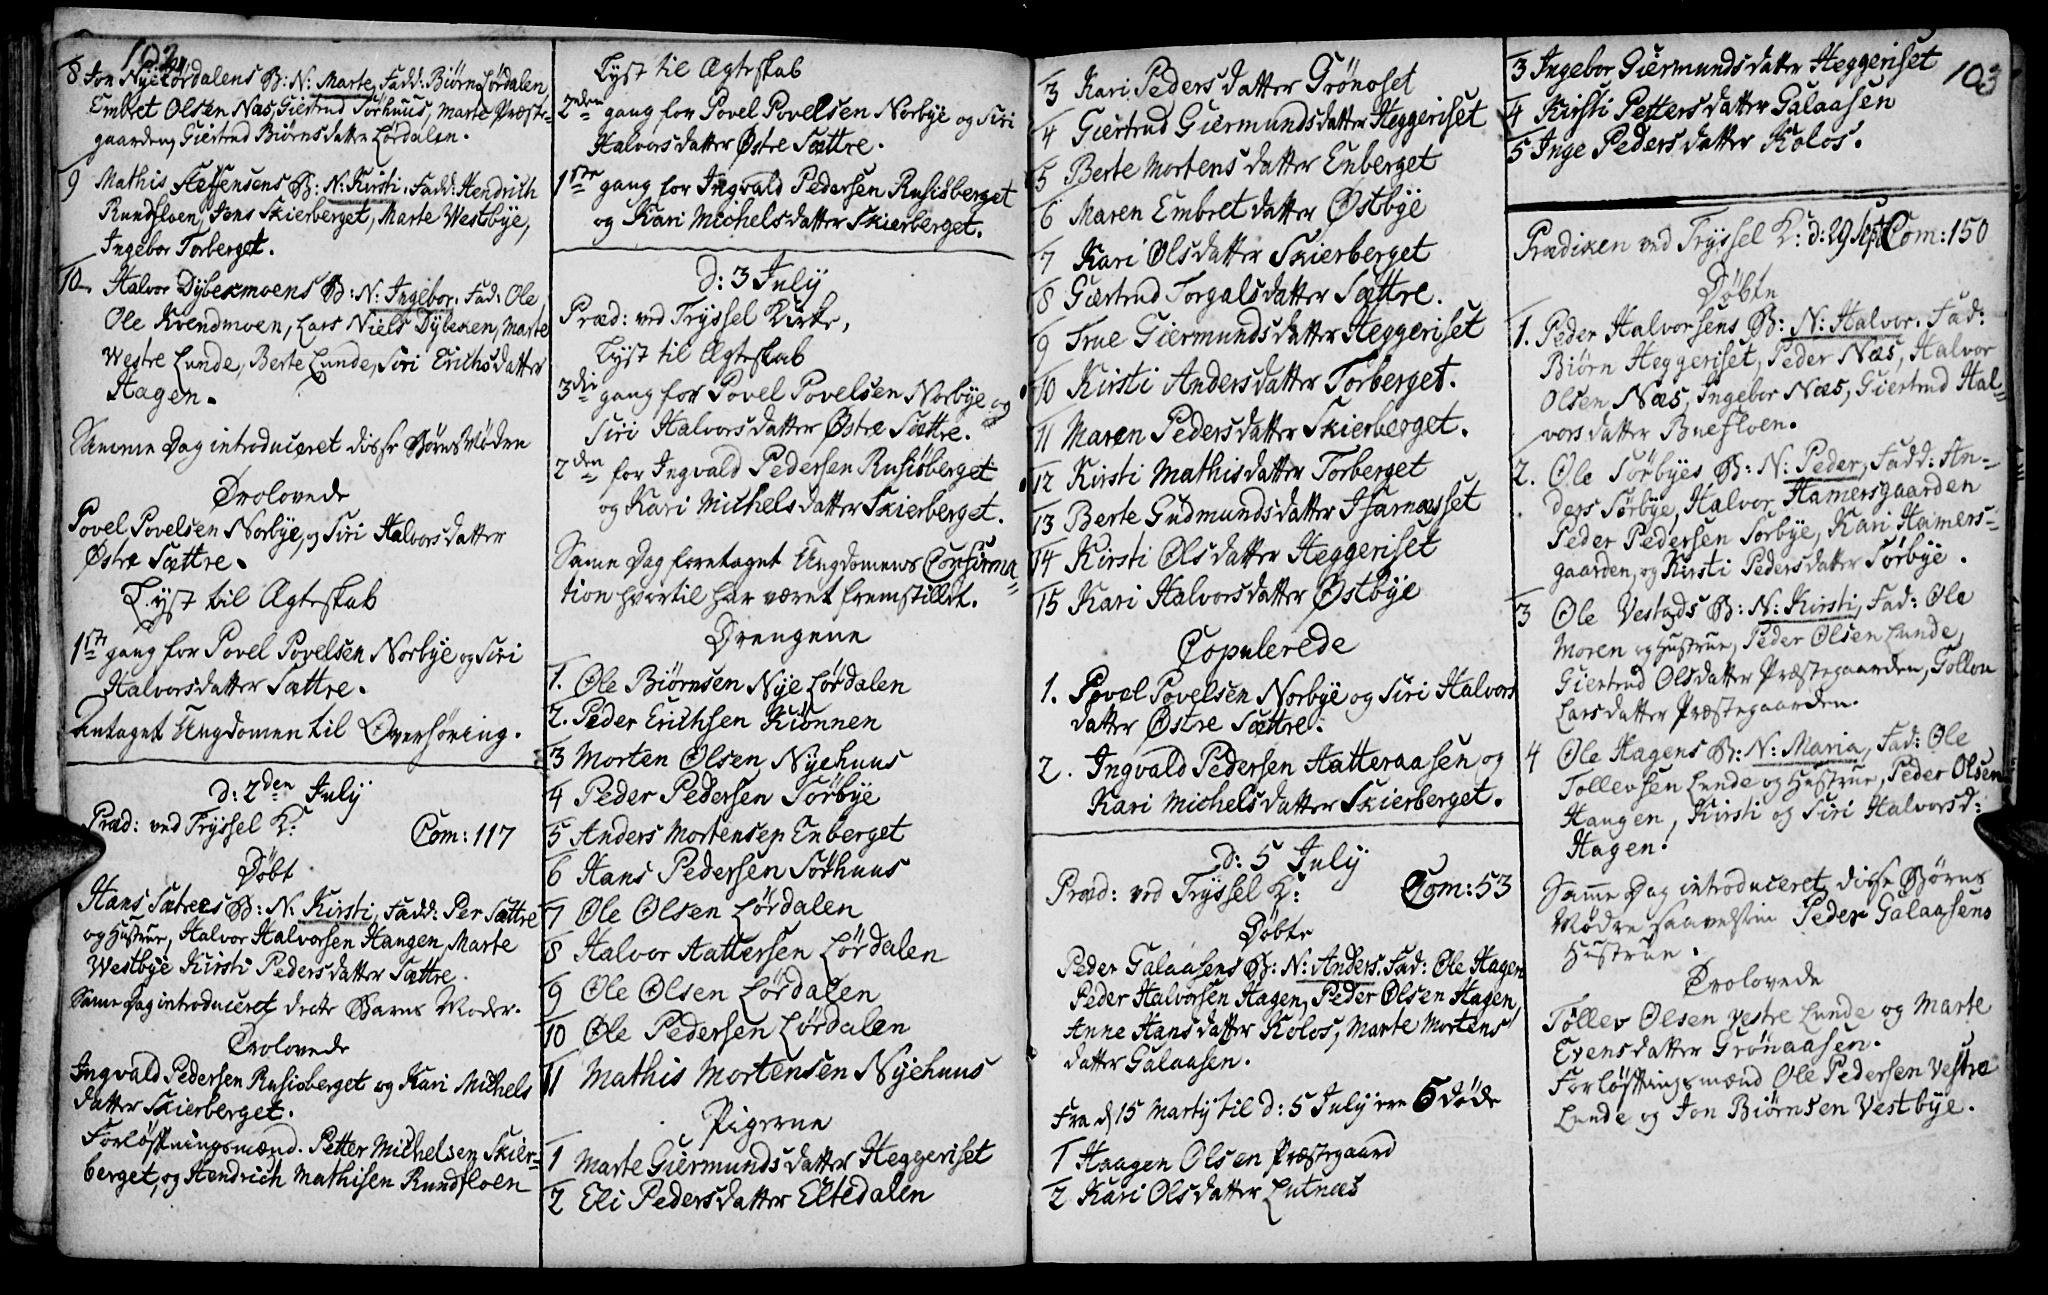 102.
8 Jon Nye Lördalens B: N: Marte, Fadd: Biörn Lördalen
Embret Olsen Næs, Giertrud Sörhuus, Marte Præste-
gaarden, Giertrud Biörnsdatter Lördalen.
9 Mathis Steffensens B: N: Kirsti. Fadd: Hendrich
Rundfloen, Jens Skierberget, Marte Westbye,
Ingebor Torberget.
10 Halvor Dybekmoens B: N: Ingebor. Fad: Ole
Ole Kvendmoen, Lars Niels Dybeken, Marte
Westre Lunde, Berte Lunde, Siri Erichsdatter
Hagen.
Samme Dag introduceret disse Börns Mödre
Trolovede
Povel Povelsen Norbye, og Siri Halvorsdatter
Østre Sættre.
Lyst til Ægteskab
1ste gang for Povel Povelsen Norbye og Siri
Halvorsdatter Sættre.
Antaget Ungdomen til Overhöring.
d: 2den July
Præd: ved Tryssel K: Com: 117
Döbt
Hans Sætres B: N: Kirsti, Fadd: Per Sættre
og Hustrue, Halvor Halvorsen Haugen, Marte
Westbye Kirsti Pedersdatter Sættre.
Same Dag introduceret dette Barns Moder.
Trolovede
Ingvald Pedersen Rusisberget og Kari Michels
datter Skierberget.
Forlöftningsmænd. Petter Michelsen Skier-
berget, og Hendrich Mathisen Rundfloen
Lyst til Ægteskab
2den gang for Povel Povelsen Norbye og Siri
Halvorsdatter Østre Sættre.
1ste gang for Ingvald Pedersen Rusisberget
og Kari Michelsdatter Skierberget.
d: 3 July
Præd: ved Tryssel Kirke,
Lyst til Ægteskab
3die gang for Povel Povelsen Norbye og
Siri Halvorsdatter Østre Sættre.
2den for Ingvald Pedersen Rusisberget
og Kari Michelsdatter Skierberget.
Same Dag foretaget Ungdomens Confirma-
tion hvortil har været fremstillet.
Drengene
1. Ole Biörnsen Nye Lördalen
2. Peder Erichsen Kiönnen
3 Morten Olsen Nyehuus
4 Peder Pedersen Sörbye
5 Anders Mortensen Enberget
6 Hans Pedersen Sörhuus
7 Ole Olsen Lördalen
8 Halvor Hattersen Lördalen
9 Ole Olsen Lördalen
10 Ole Pedersen Lördalen
11 Mathis Mortensen Nyehuus
Pigerne
1 Marte Giermundsdatter Heggeriset
2 Eli Pedersdatter Eltedalen
3 Kari Pedersdatter Grönoset
4 Giertrud Giermundsdatter Heggeriset
5 Berte Mortensdatter Enberget
6 Maren Embretdatter Østbye
7 Kari Olsdatter Skierberget
8 Giertrud Torgalsdatter Sættre.
9 True Giermundsdatter Heggeriset
10 Kirsti Andersdatter Torberget.
11 Maren Pedersdatter Skierberget.
12 Kirsti Mathisdatter Torberget
13 Berte Gudmundsdatter Jfarnæsset
14 Kirsti Olsdatter Heggeriset
15 Kari Halvorsdatter Østbye
Copulerede
1. Povel Povelsen Norbye og Siri Halvors
datter Østre Sættre.
2. Ingvald Pedersen Hatteraasen og
Kari Michelsdatter Skierberget.
d: 5 July
Præd: ved Tryssel K: Com: 53
Döbte
Peder Galaasens B: N: Anders. Fad: Ole Hagen
Peder Halvorsen Hagen, Peder Olsen Hagen,
Anne Hansdatter Kolos, Marte Mortens
datter Galaasen.
Fra d 15 Martij til d: 5 July ere 5 döde
1 Haagen Olsen Præstegaard
2 Kari Olsdatter Lutnæs
3 Ingebor Giermundsdatter Heggeriset
103
4 Kirsti Pettersdatter Galaasen
5 Inge Pedersdatter Kolos.
Prædiken ved Tryssel K: d: 29 Sept Com: 150
Döbte
1. Peder Halvorsens B: N: Halvor. Fad:
Biörn Heggeriset, Peder Næs, Halvor
Olsen Næs, Ingebor Næs, Giertrud Hal-
vorsdatter Bnefloen.
2. Ole Sörbyes B: N: Peder, Fadd: An-
ders Sörbye, Halvor Hamersgaarden
Peder Pedersen Sörbye, Kari Hamers-
gaarden, og Kirsti Pedersdatter Sörbye.
3 Ole Vestads B: N: Kirsti, Fad: Ole
Moren og Hustrue, Peder Olsen Lunde,
Giertrud Olsdatter Præstegaarden, Tollou
Larsdatter Præstegaarden.
4 Ole Hagens B: N: Maria, Fad: Ole
Tollevsen Lunde og Hustrue, Peder Olsen
Haugen, Kirsti og Siri Halvorsd:
Hagen.
Same Dag introduceret disse Börns
Mödre saavelsom Peder Galaasens
Hustrue.
Trolovede
Töllev Olsen Vestre Lunde og Marte
Evensdatter Grönaasen.
Forlöftningsmænd Ole Pedersen Vestre
Lunde og Jon Biörnsen Vestbye.